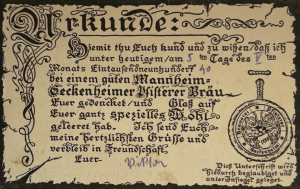 Urkunde:
Hiemit thu Euch kund und zu wißen/daß ich
unter heutigem/am 5 ten Tage des V ten
Monats Eintausendneunhundert 40
bei einem guten Mannheim-
Seckenheimer Pfisterer Bräu
Euer gedencket/und Glaß auf
Euer gantz spezielles Wohl
geleeret hab. Ich send Euch
meine hertzlichsten Grüße und
verbleib in Freundschaft.
Euer
Dieß Unterschrift wird
hiedurch beglaubigt und
unter Insiegel gelegt.